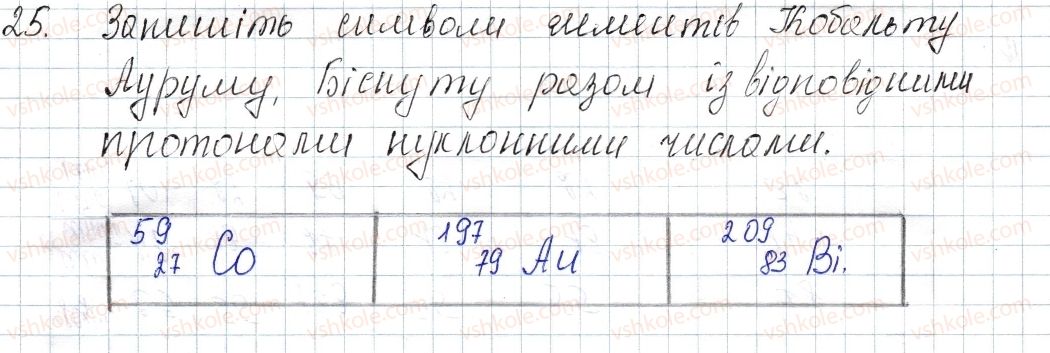 25. Запишіть символи елементів Кобальту
Ауруму, Бісмуту разом із відповідними
протонами нуклонними числами.
59 27 Co 197 79 Au 209 83 Bi.